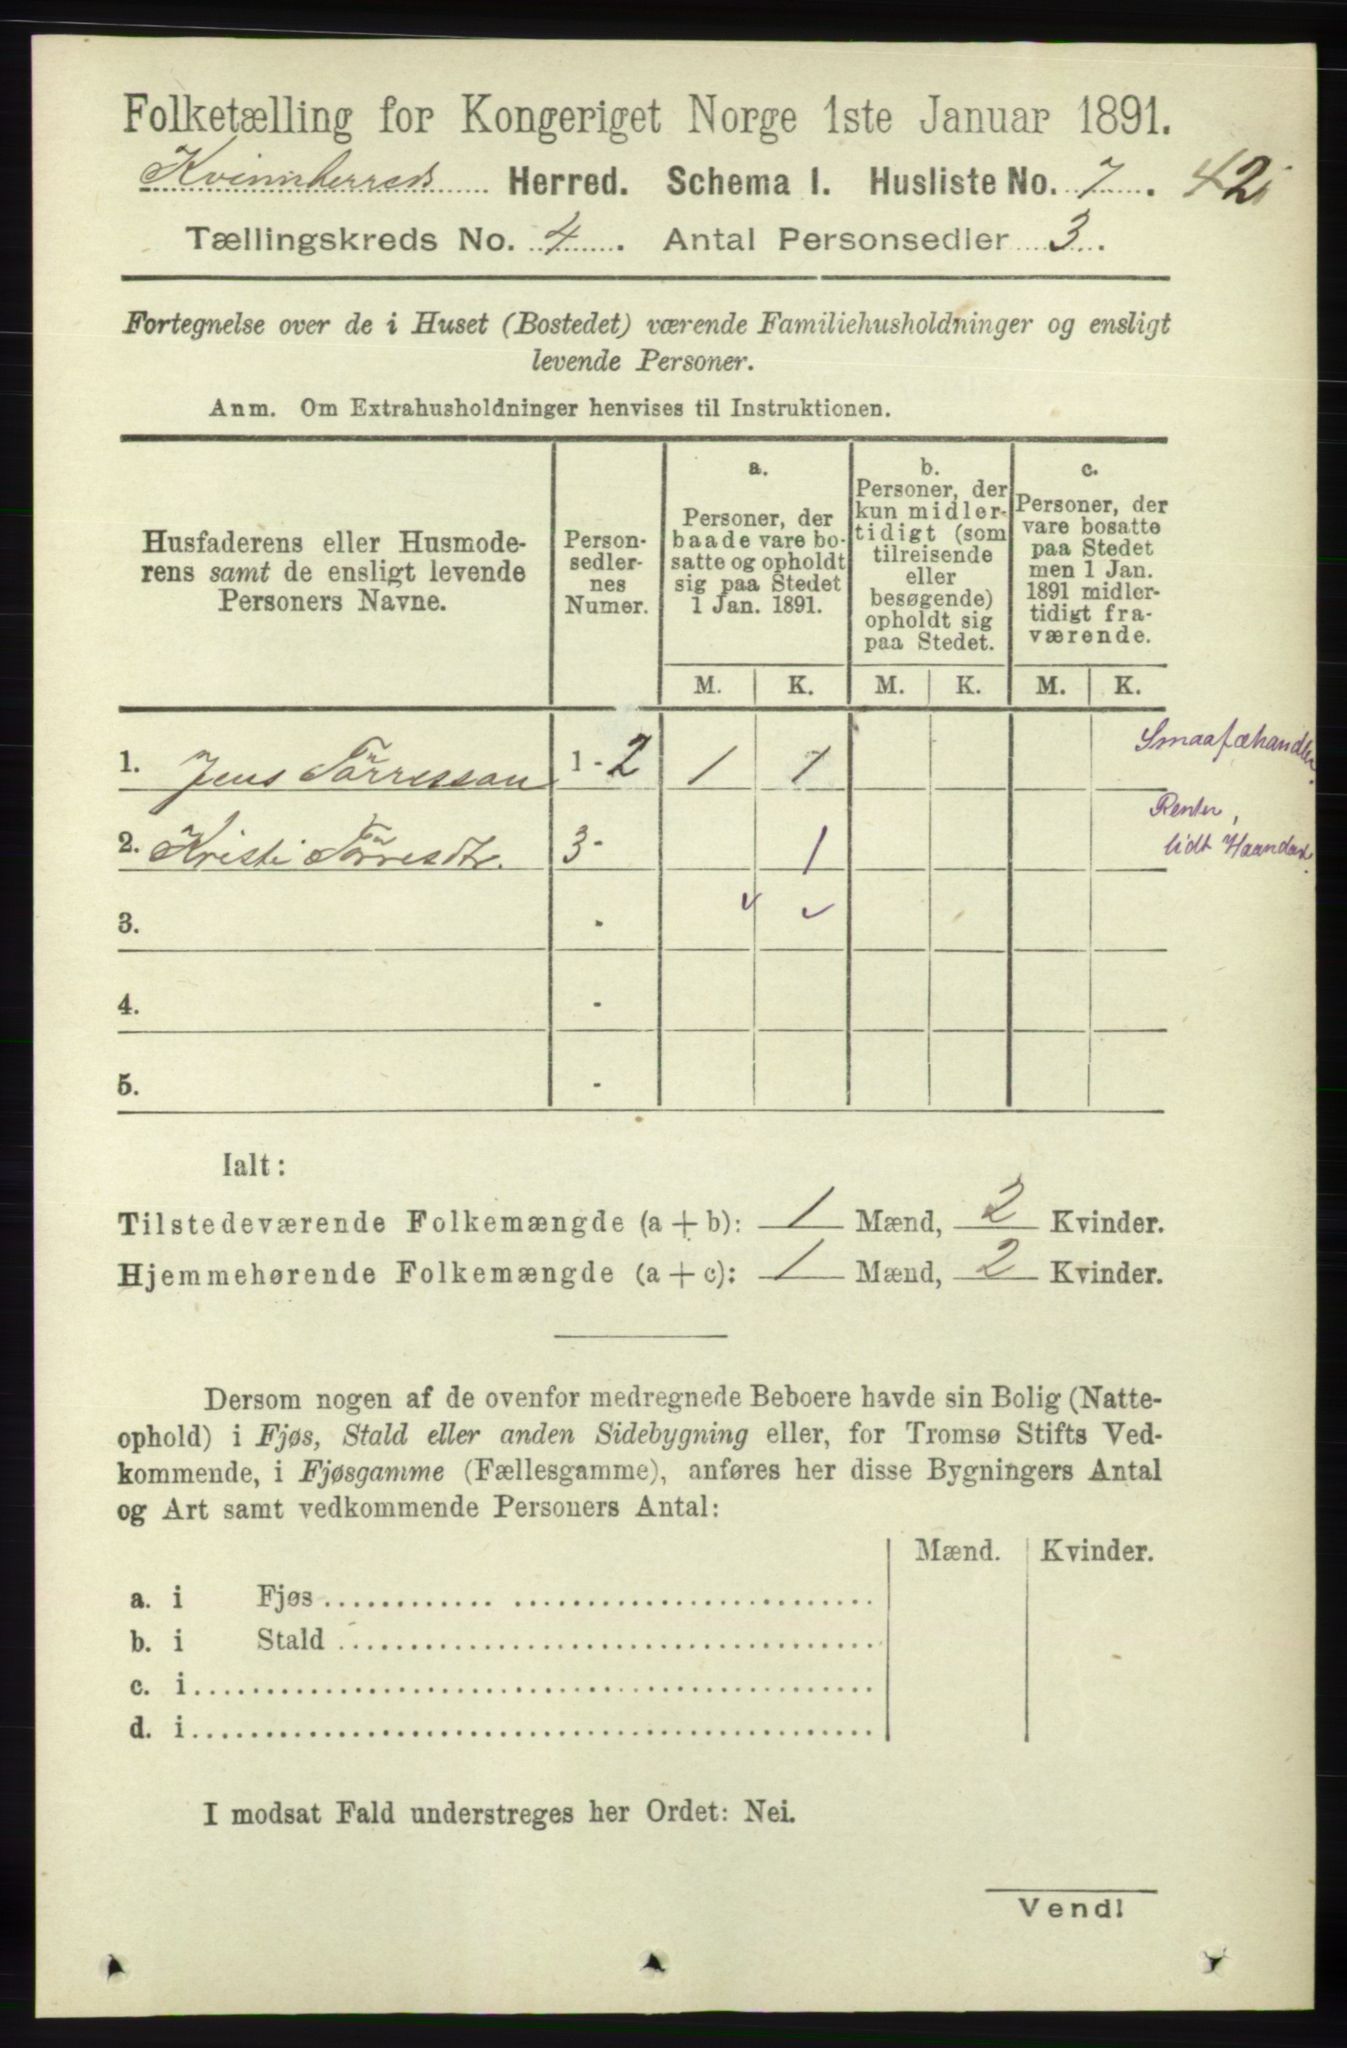 Folketælling for Kongeriget Norge 1ste Januar 1891.
Kvinnherreds Herred. Schema I. Husliste No. 7. 42
Tællingskreds No. 4. Antal Personsedler 3.
Fortegnelse over de i Huset (Bostedet) værende Familiehusholdninger og ensligt
levende Personer.
Anm. Om Extrahusholdninger henvises til Instruktionen.
Husfaderens eller Husmode-
rens samt de ensligt levende
Personers Navne.
Person-
sedler-
nes
Numer.
a.
Personer, der
baade vare bo-
satte og opholdt
sig paa Stedet
1 Jan. 1891.
b.
Personer, der
kun midler-
tidigt (som
tilreisende
eller
besøgende)
opholdt sig
paa Stedet.
c.
Personer, der
vare bosatte
paa Stedet
men 1 Jan.
1891 midler-
tidigt fra-
værende.
M. K. M. K. M. K.
1. Jens Törresson 1 - 2 1 1 Smaafæhandler.
2. Kristi Törresdtr. 3 - 1 Renter,
lidt Haandarb.
3. -
4. -
5. -
Ialt:
Tilstedeværende Folkemængde (a + b): 1 Mænd, 2 Kvinder.
Hjemmehørende Folkemængde (a + c): 1 Mænd, 2 Kvinder.
Dersom nogen af de ovenfor medregnede Beboere havde sin Bolig (Natte-
ophold) i Fjøs, Stald eller anden Sidebygning eller, for Tromsø Stifts Ved-
kommende, i Fjøsgamme (Fællesgamme), anføres her disse Bygningers Antal
og Art samt vedkommende Personers Antal:
Mænd. Kvinder.
a. i Fjøs
b. i Stald
c. i
d. i
I modsat Fald understreges her Ordet: Nei.
Vend!